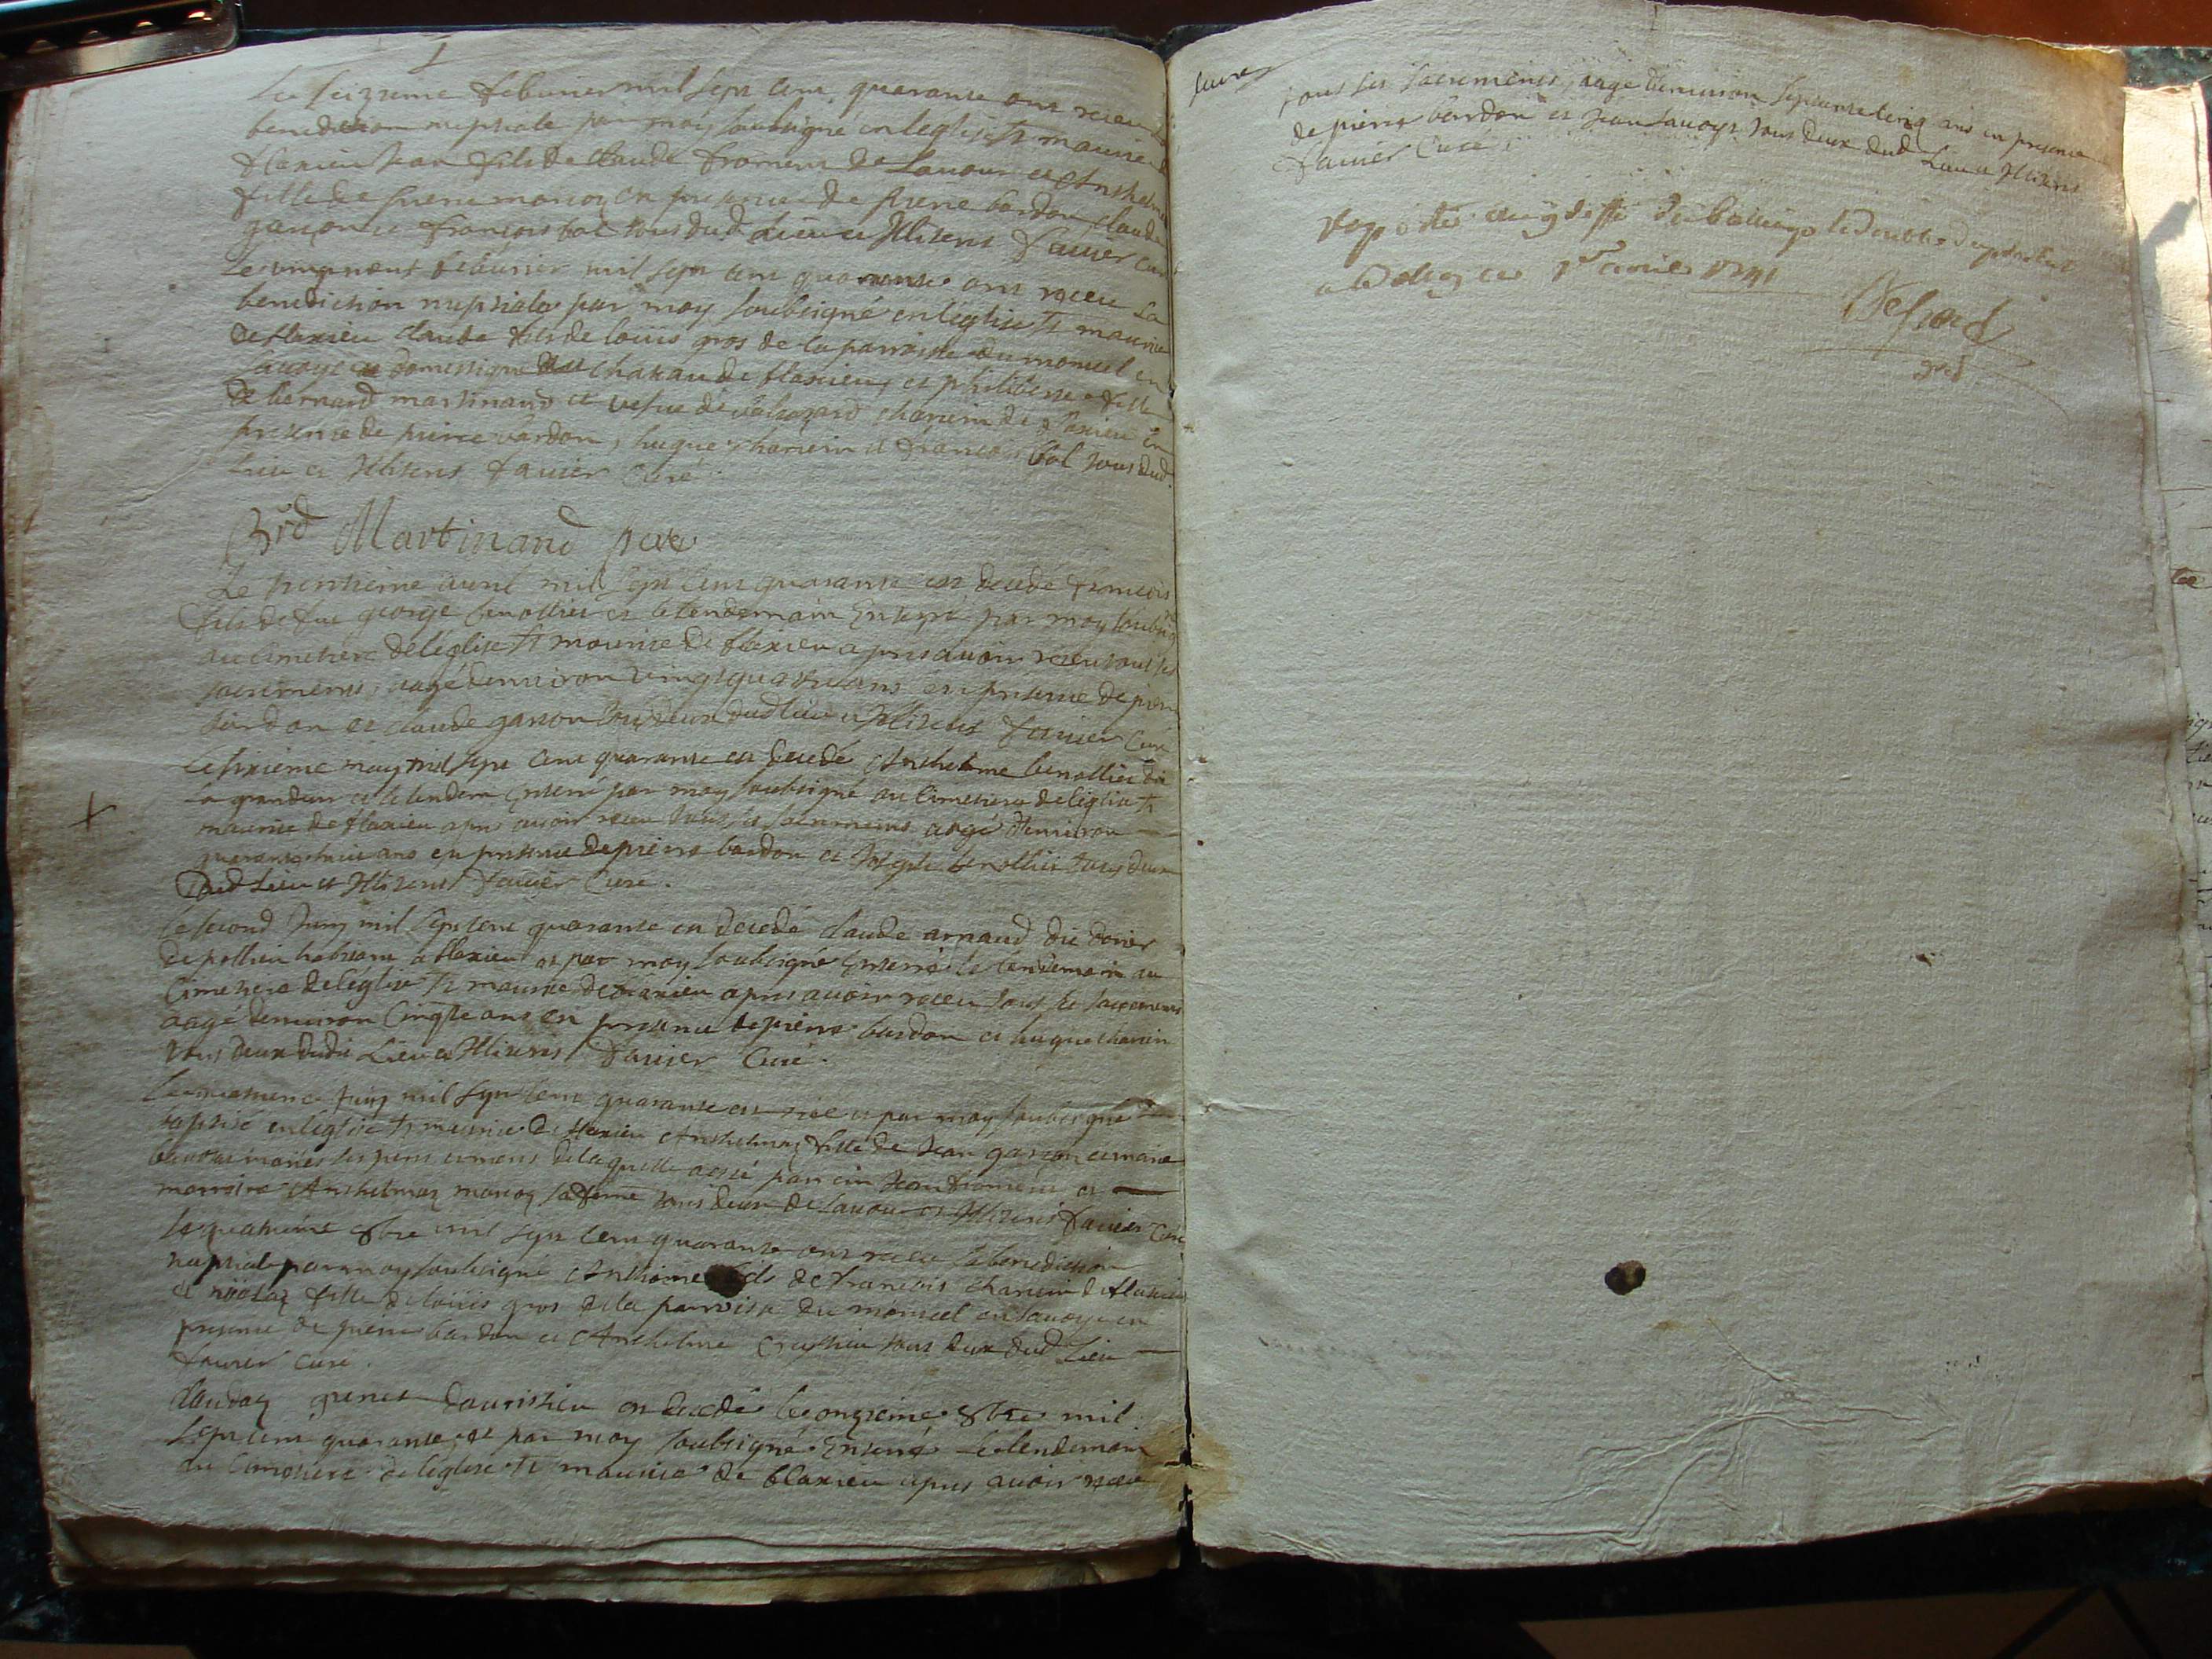 Le seizieme febvrier mil sept cens quarante ont receu la
benediction nuptiale par moy soubsigné en leglise st maurice de
flaxieu Jean fils de Claude froment de Lavour et Anthelme
fille de pierre marion en presence de pierre bardon claude
garçon et françois bal tous dud Lieu et Illiterés favier curé
Le vingtneuf feàuvrier mil sept cens quarante ont receu La
benediction nuptiale par moy soubsigné en leglise st maurice
de flaxieu claude fils de loüis gros de la parroisse du monuel en
savoye et domestique au chateau de flaxieu et philiberte fille
de bernard martinand et vefve de chanein de flaxieu en
presence de pierre bardon, hugue chanein et francois bal tous dud
Lieu et Illiterés favier Curé
Brd Martinand pere
Le trentieme avril mil sept cens quarante est decedé francois
fils de feu george benollier et le lendemain Enterré par moy soubsigné
au cimetiere de leglise st maurice de flaxieu apres avoir receu tous ses
sacremens, aagé denviron vingtquatre ans en presence de pierre
bardon et claude garson tous deux dud lieu et Illiterés favier Curé
Le sixieme may mil sept cens quarante est decedé Anthelme benollier dit
la grandeur et le lendem Enterré par moy soubsigné au Cimetiere de leglise st
maurice de flaxieu apres avoir receu tous ses sacremens aagé denviron
quarante huit ans en presence de pierre bardon et Joseph benollier tous deux
Dud Lieu et Illiterés favier Curé.
Le second Juin mil sept cens quarante est decedé claude arnaud dit dorier
de pollieu habitant a flaxieu et par moy soubsigné Enterré le lendemain au
Cimetiere de leglise st maurice de flaxieu apres avoir receu tous ses sacremens
aagé denviron Cinqte ans en presence de pierre bardon et hugue chanein
tous deux dudit Lieu et Illiterés favier Curé.
Le Juin mil sept cens quarante est née et par moy soubsigné
baptisé en leglise st maurice de flaxieu Anthelmaz fille de Jean garçon et marie
mariés ses pere et mere de laquelle a esté parrein Jean froment et
marreine Anthelmaz marion sa feme tous deux de Lavour et Illiterés favier Curé
Le quatrieme 8bre mil sept cens quarante ont receu la benediction
nuptiale par moy soubsigné Anthoine fils de francois chanein de flaxieu
et nicolaz fille de loüis gros de la parroisse du monuel en savoye en
presence de pierre bardon et Anthelme Crusthieu tous deux dud Lieu
favier curé.
Claudaz grenet est decedé le onzieme 8bre mil
sept cens quarante, et par moy soubsigné Enterré le lendemain
au cimetiere de leglise st maurice de flaxieu apres avoir receu
tous ses sacremens, aagé denviron septante cinq ans en presence
de pierre bardon et Jean savoye tous deux dud Lieu et Illiterés
favier Curé
a Belley ce 1er avril 1741